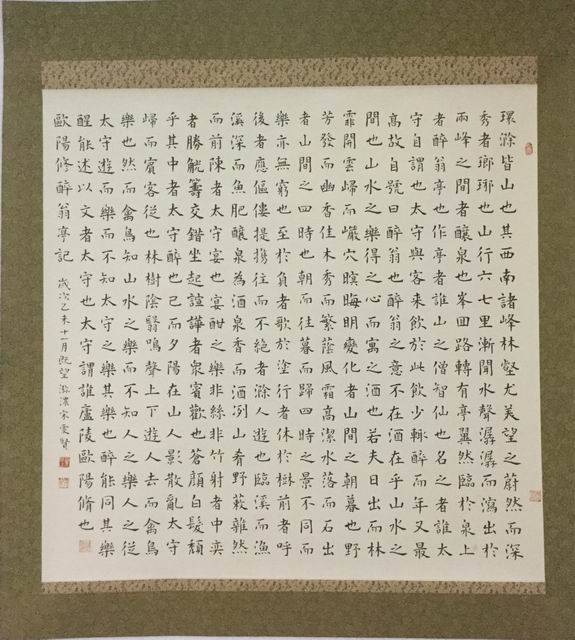 環滁皆山也其西南諸峰林壑尤美望之蔚然而深
秀者瑯琊也山行六七里漸聞水聲潺潺而瀉出於
兩峰之間者釀泉也峯回路轉有亭翼然臨於泉上
者醉翁亭也作亭者誰山之僧智仙也名之者誰太
守自謂也太守與客來飲於此飲少輒醉而年又最
高故自號曰醉翁也醉翁之意不在酒在乎山水之
間也山水之樂得之心而寓之酒也若夫日出而林
霏開雲歸而巖穴暝晦明變化者山間之朝暮也野
芳發而幽香佳木秀而繁蔭風霜高潔水落而石出
者山間之四時也朝而往暮而歸四時之景不同而
樂亦無窮也至於負者歌於塗行者休於樹前者呼
後者應傴僂提攜往而不絕者滁人遊也臨溪而漁
溪深而魚肥釀泉為酒泉香而酒冽山肴野蔌雜然
而前陳者太守宴也宴酣之樂非絲非竹射者中奕
者勝觥籌交錯坐起諠譁者眾賓歡也蒼顏白髮頹
乎其中者太守醉也已而夕陽在山人影散亂太守
歸而賓客從也林樹陰翳鳴聲上下遊人去而禽鳥
樂也然而禽鳥知山水之樂而不知人之樂人之從
太守遊而樂而不知太守之樂其樂也醉能同其樂
醒能述以文者太守也太守謂誰廬陵歐陽脩也
歐陽修醉翁亭記 歲次乙未十一月既望